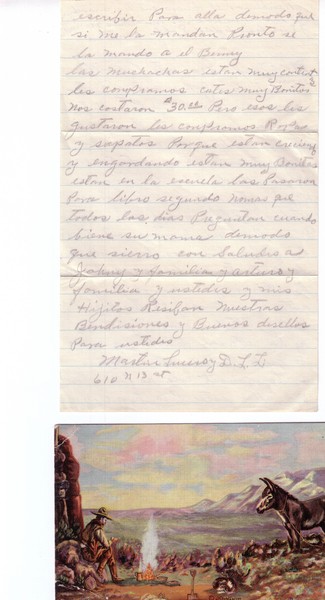 escribir Para alla demodo que
si me la mandan Pronto se
la mando a el Benny
las muchachas estan muy contentas
les compramos cotes muy Bonitos
nos costaron $30.00 Pero esos les
gustaron les compramos Ropas
y sapatos Porque estan creciendo
y engordando estan muy Bonitas
estan en la escuela las Pasaron
Para libro segundo nomas que
todos las dias Preguntan cuando
biene su mama demodo
que sierro con Saludes a
Johny y familia y arturo y
familia y ustedes y mis
Hijitos Resiban nuestras
Bendisiones y Buenos deseos
Para ustedes
Lucero y D. L. L.
610 N 13 st